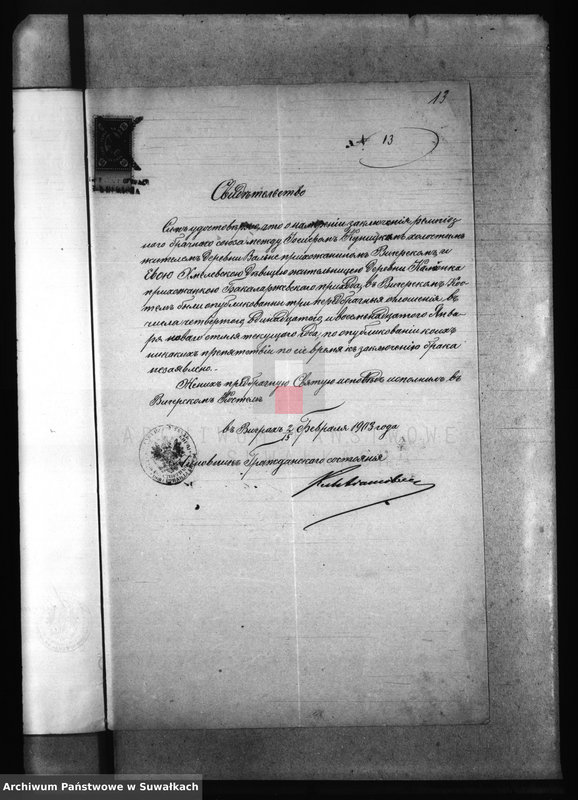 13
№ 13
Свидѣтельство
Симъ удостовѣряю, что о намѣреніи заключенія религіоз
наго брачнаго союза между Іосифомъ холостымъ
жителемъ деревни прихожаниномъ Вигрскомъ и
Евою дѣвицею жительницею деревни
прихожанкою Бакаларжевскаго прихода, въ Вигерскомъ Кос
телѣ были опубликованы три предбрачныя оглашенія въ
числа четвертаго, одинадцатаго и восемнадцатаго Янва
ря новаго стиля текущаго года, по опубликованіи коихъ
никакихъ препятствій по сіе время къ заключенію брака
незаявлено.
Женихъ предбрачную Святую исповѣдь исполнилъ въ
Вигерскомъ Костелѣ
въ Виграхъ 2/15 Февраля 1903 года
Чиновникъ Гражданскаго состоянія
ARCHIWUM PAŃSTWOWE
Archiwum Państwowe w Suwałkach